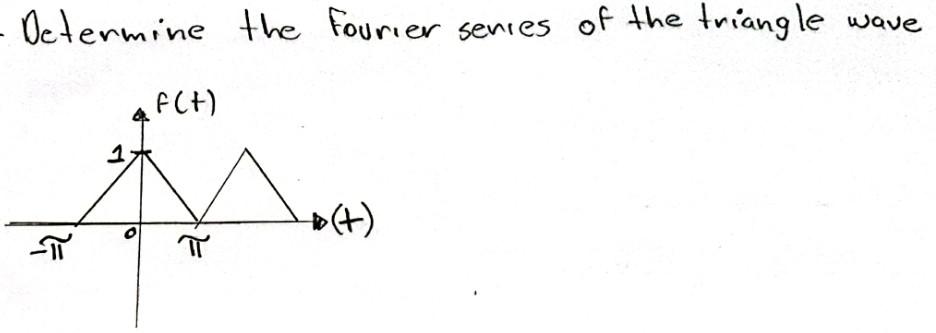 - Determine the Fourier series of the triangle wave
f(t)
1
(t)
-π 0 π